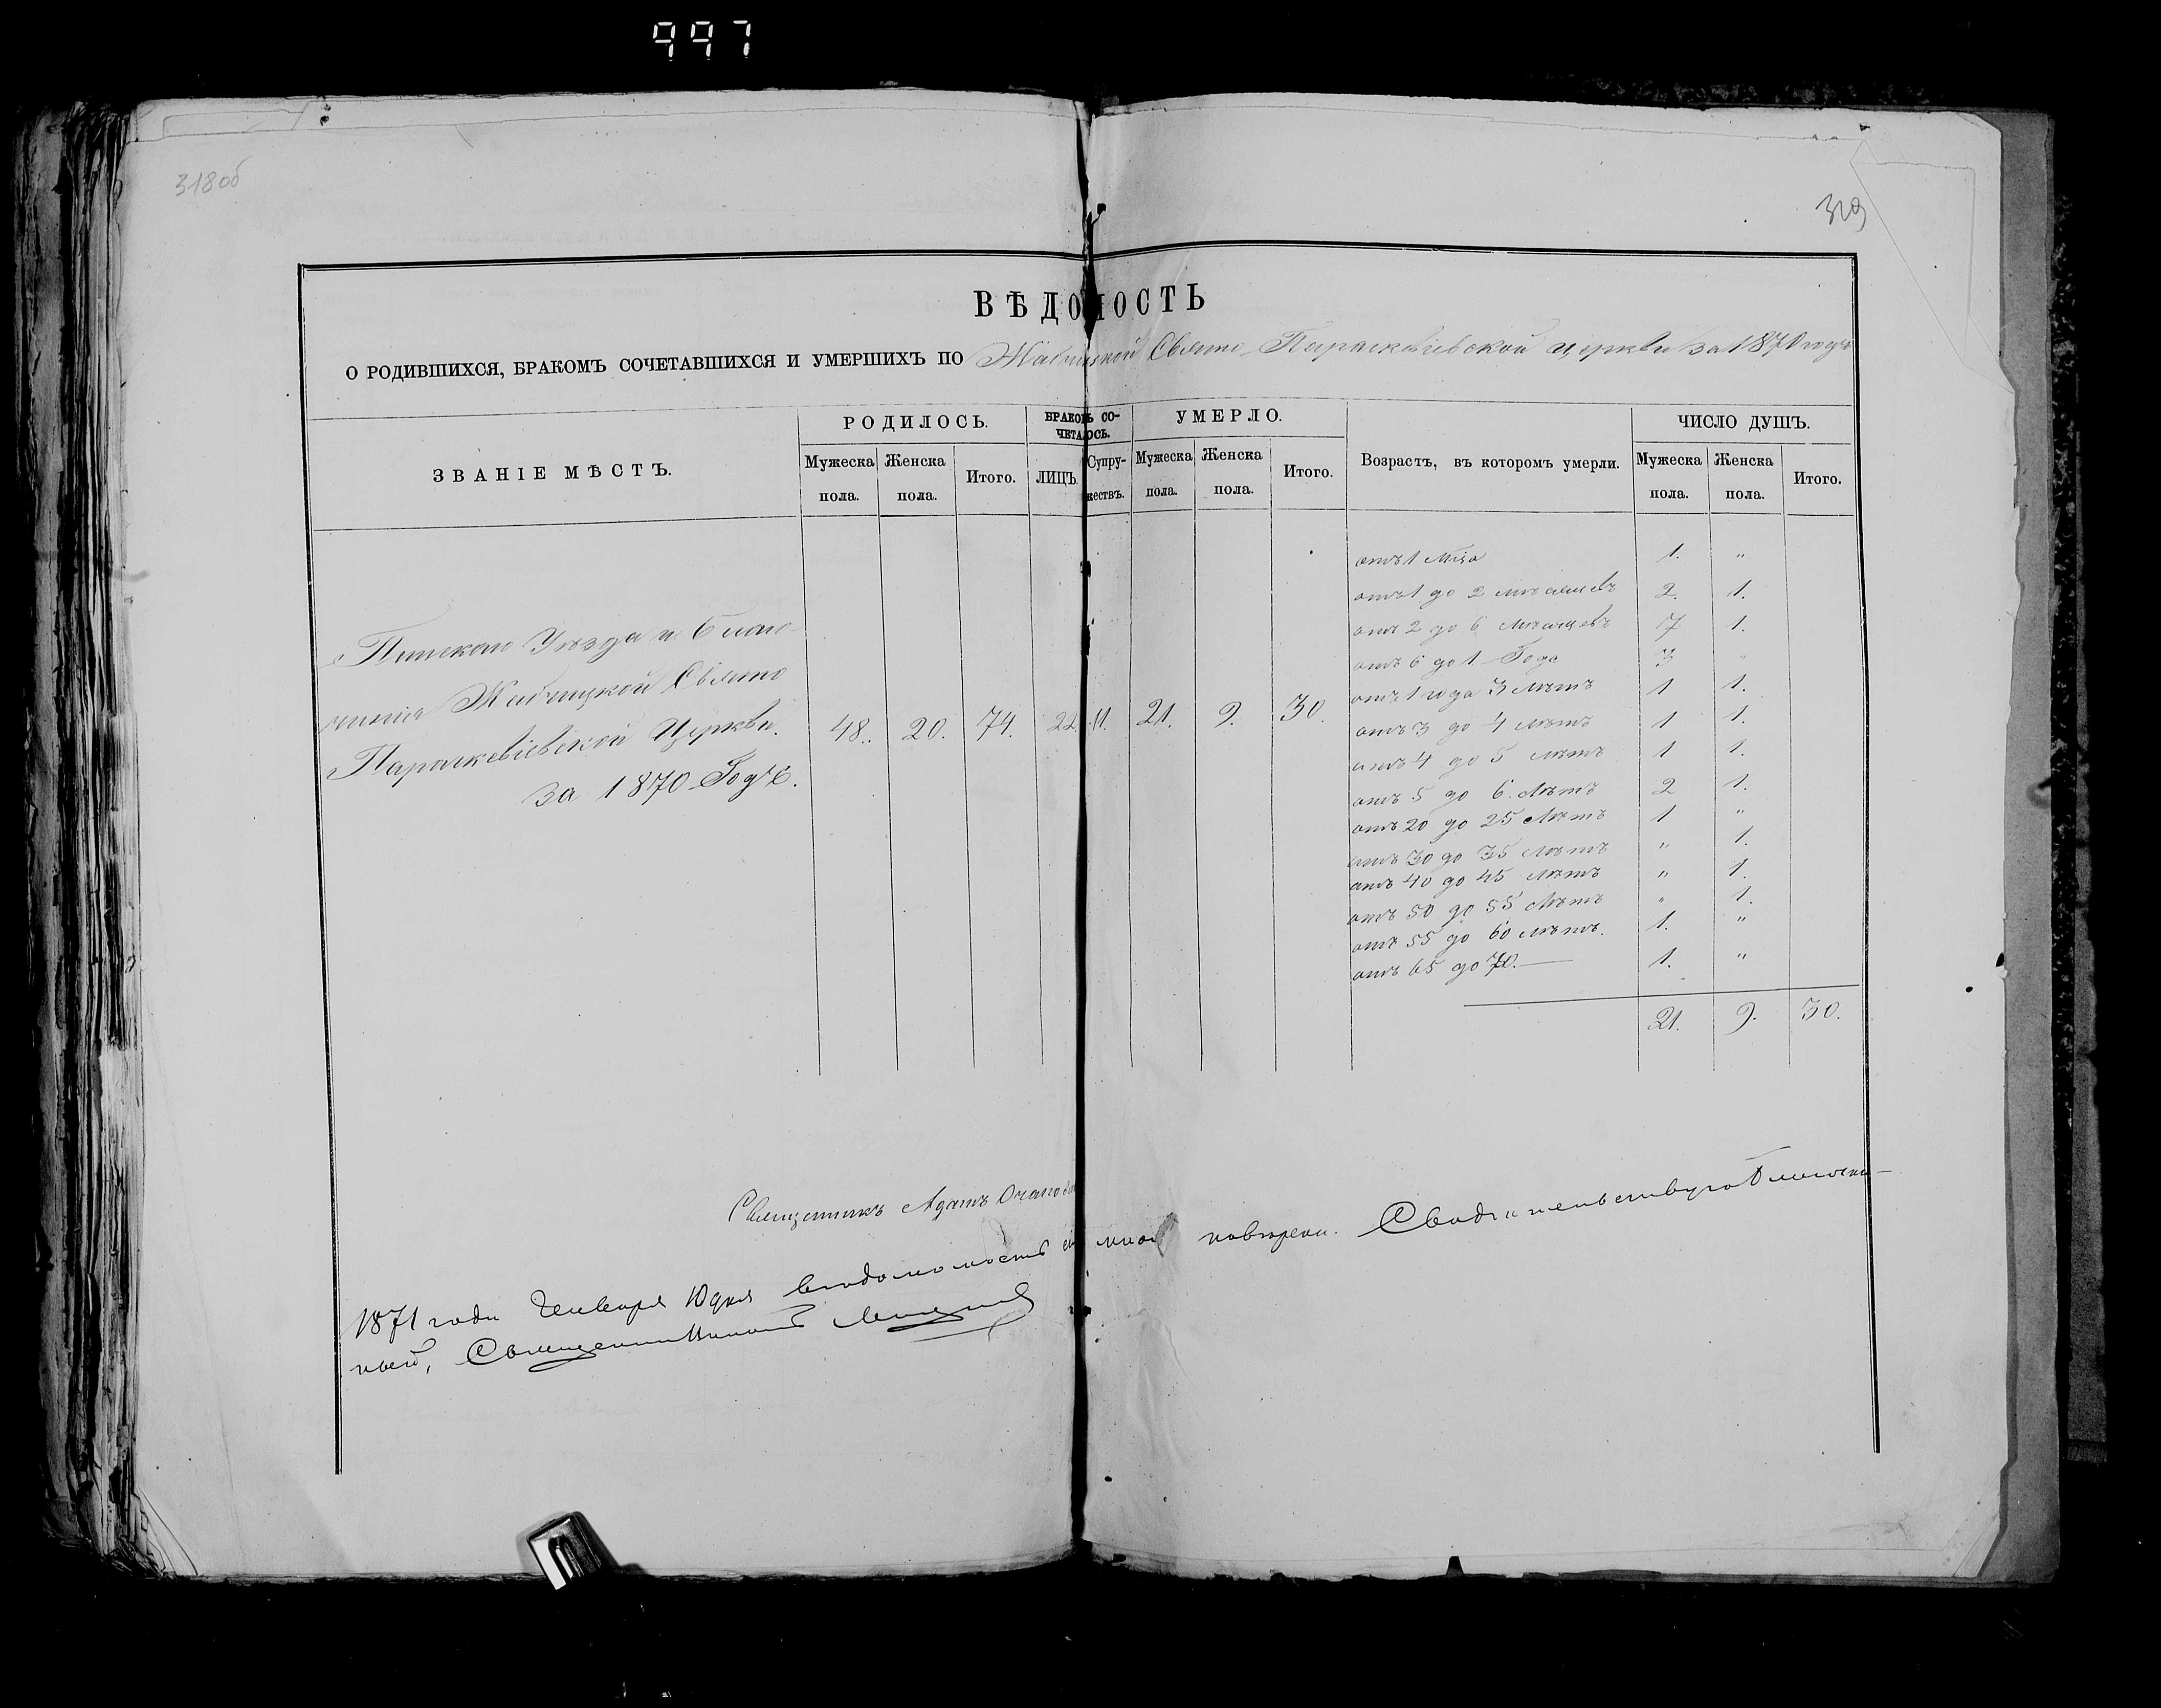 997
318об
319
ВѢДОМОСТЬ
О РОДИВШИХСЯ, БРАКОМЪ СОЧЕТАВШИХСЯ И УМЕРШИХЪ ПО Жабчицкой Свято Параскевіевской церкви за 1870 годъ
ЗВАНІЕ МѢСТЪ. РОДИЛОСЬ. БРАКОМЪ СОЧЕТАЛОСЬ. УМЕРЛО. Возрастъ, въ которомъ умерли. ЧИСЛО ДУШЪ.
Мужеска пола. Женска пола. Итого. ЛИЦЪ. Супружествъ. Мужеска пола. Женска пола. Итого. Мужеска пола. Женска пола. Итого.
Пинскаго Уѣзда и Благо-
чинія Жабчицкой Свято
Параскевіевской Церкви.
за 1870 Годъ.
48. 20. 74. 22 11. 21. 9. 30.
отъ 1 Мѣца 1. "
отъ 1 до 2 мѣсяцевъ 2. 1.
отъ 2 до 6 Мѣсяцевъ 7 1.
отъ 6 до 1 Года 3 "
отъ 1 года 3 Лѣтъ 1 1.
отъ 3 до 4 лѣтъ 1 1.
отъ 4 до 5 лѣтъ 1 1.
отъ 5 до 6 Лѣтъ 2 1.
отъ 20 до 25 Лѣтъ 1 "
отъ 30 до 35 Лѣтъ " 1.
отъ 40 до 45 Лѣтъ " 1.
отъ 50 до 55 Лѣтъ " 1.
отъ 55 до 60 лѣтъ. 1. "
отъ 65 до 70. — 1. "
21. 9. 30.
Священникъ Адамъ
1871 года Генваря 10 дня вѣдомость мною повѣрена. Свидѣтельствую Благочин-
ный, Священникъ